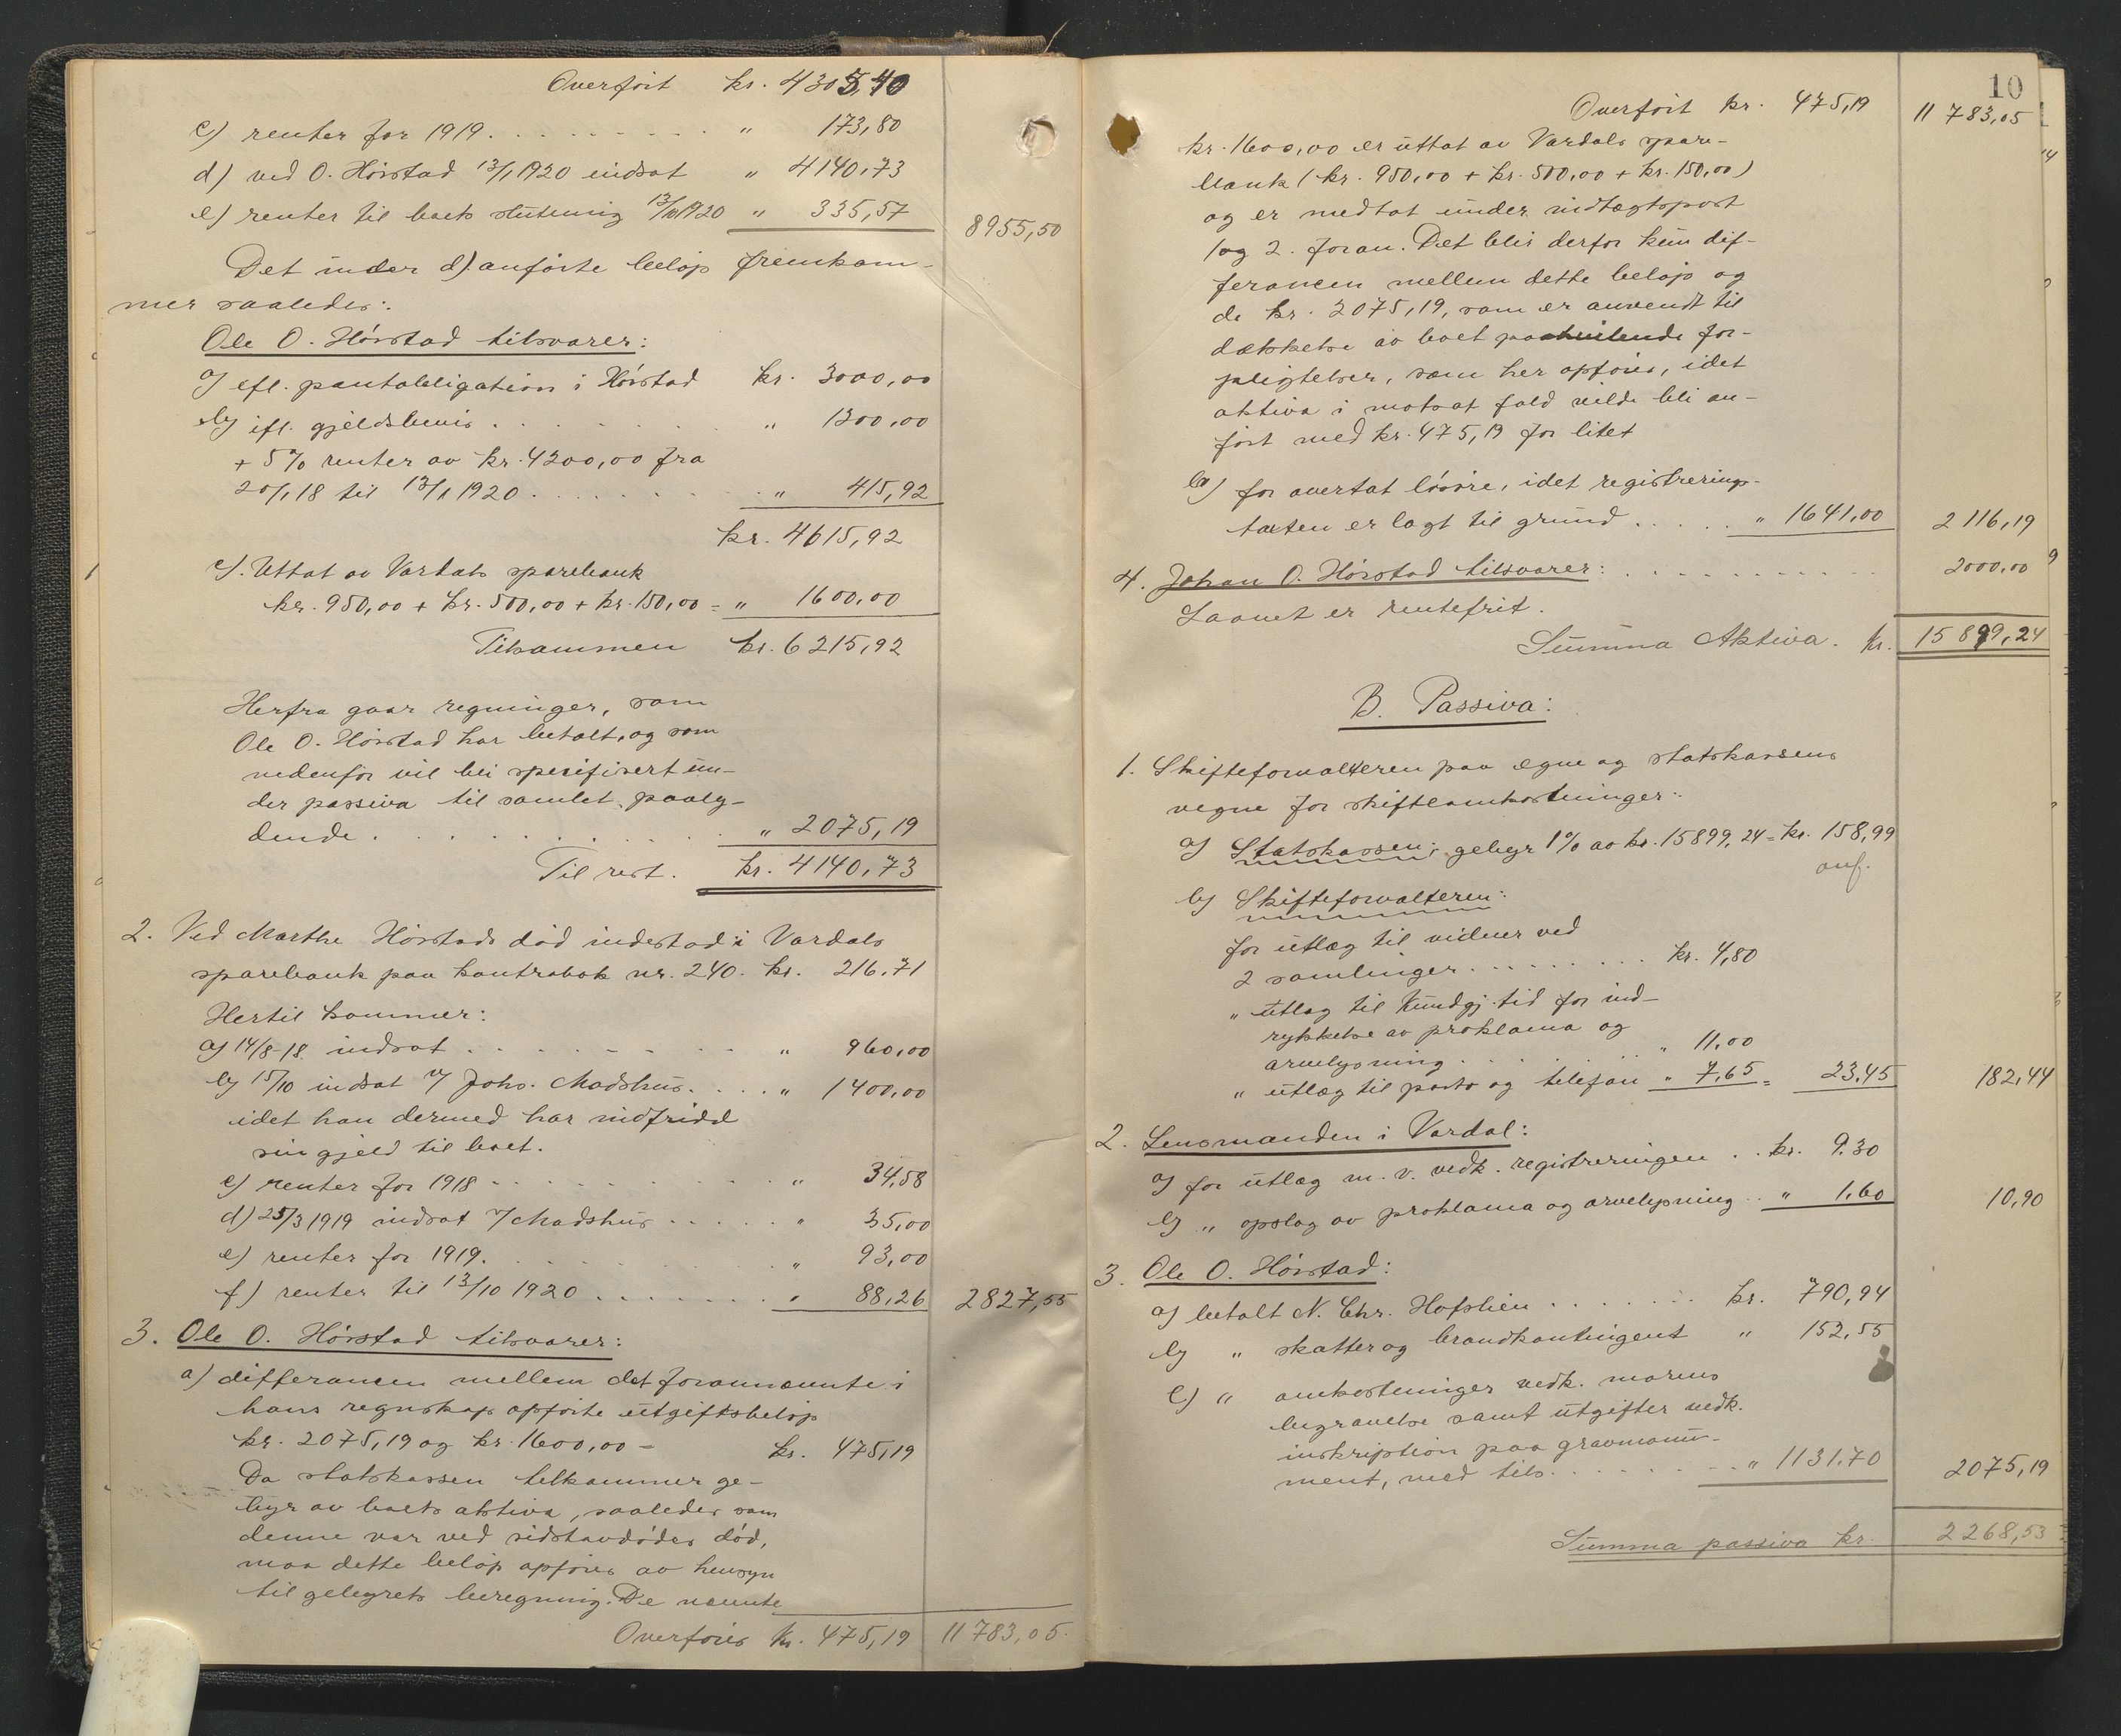 Overført kr. 4305,40
c) renter for 1919. . . . . . . . . . " 173,80
d) ved O. Hørstad 13/1 1920 indsat " 4140,73
e) renter til boets slutning 13/10 1920 " 335,57 8955,50
Det under d) anførte beløp fremkom-
mer saaledes:
Ole O. Hørstad tilsvarer:
a) efl. pantobligation i Hørstad kr. 3000,00
b) ifl. gjeldsbevis . . . . . . . . . " 1200,00
+ 5% renter av kr. 4200,00 fra
20/1 18 til 13/1 1920 . . . . . . . . . " 415,92
kr. 4615,92
c). Uttat av Vardals sparebank
kr. 950,00 + kr. 500,00 + kr. 150,00 = " 1600,00
Tilsammen kr. 6215,92
Herfra gaar regninger, som
Ole O. Hørstad har betalt, og som
nedenfor vil bli specifisert un-
der passiva til samlet paaly-
dende . . . . . . . . . . . " 2075,19
Til rest. kr. 4140,73
2. Ved Marthe Hørstads død indestod i Vardals
sparebank paa kontrabok nr. 240. kr. 216.71
Hertil kommer:
a) 14/8-18 indsat . . . . . . . . " 960,00
b) 15/10 indsat v/ Johs. Madshus. . . . . " 1400,00
idet han dermed har indfridd
sin gjeld til boet.
c) renter for 1918 . . . . . . . . . . " 34,58
d) 25/3 1919 indsat v/ Madshus . . . . . " 35,00
e) renter for 1919. . . . . . . . . . " 93,00
f) renter til 13/10 1920 . . . . . . . " 88,26 2827,55
3. Ole O. Hørstad tilsvarer:
a) differancen mellem det forannævnte i
hans regnskap opførte utgiftsbeløp
kr. 2075,19 og kr. 1600,00 = kr. 475,19
Da statskassen tilkommer ge-
byr av boets aktiva, saaledes som
denne var ved sidstavdødes død,
maa dette beløp opføres av hensyn
til gebyrets beregning. De nævnte
Overføres kr. 475,19 11 783,05.
10
Overført kr. 475,19 11 783,05
kr. 1600,00 er uttat av Vardals spare-
bank (kr. 950,00 + kr. 500,00 + kr. 150,00)
og er medtat under indtægtspost
1 og 2. foran. Det blir derfor kun dif-
ferancen mellem dette beløp og
de kr. 2075,19, som er anvendt til
dækkelse av boet paahvilende for-
pligtelser, som her opføres, idet
aktiva i motsat fald vilde bli an-
ført med kr. 475,19 for litet
b) for overtat løsøre, idet registrerings-
taxten er lagt til grund . . . . . " 1641,00 2 116,19
4. Johan O. Hørstad tilsvarer: . . . . . . . . . . 2000,00
Laanet er rentefrit.
Summa Aktiva. kr. 15 899,24
B. Passiva:
1. Skifteforvalteren paa egne og statskassens
vegne for skifteomkostninger:
a) Statskassen: gebyr 1% av kr. 15899,24 = kr. 158,99
anf.
b) Skifteforvalteren:
for utlæg til vidner ved
2 samlinger . . . . . . . . . kr. 4,80
" utlæg til Kundgj. tid for ind-
rykkelse av proklama og
arvelysning . . . . . . . " 11.00
" utlæg til porto og telefon " 7,65 = 23,45 182,44
2. Lensmanden i Vardal:
a) for utlæg m. v. vedk. registreringen . . kr. 9.30
b) " opslag av proklama og arvelysning . . " 1,60 10,90
3. Ole O. Hørstad:
a) betalt N. Chr. Hofslien . . . . . . . kr. 790,94
b) " skatter og brandkontingent " 152,55
c.) " omkostninger vedk. morens
begravelse samt utgifter vedk.
inskription paa gravmonu-
ment, med tils. . . . . . . . . " 1131.70 2075,19
Summa passiva kr. 2 268,53